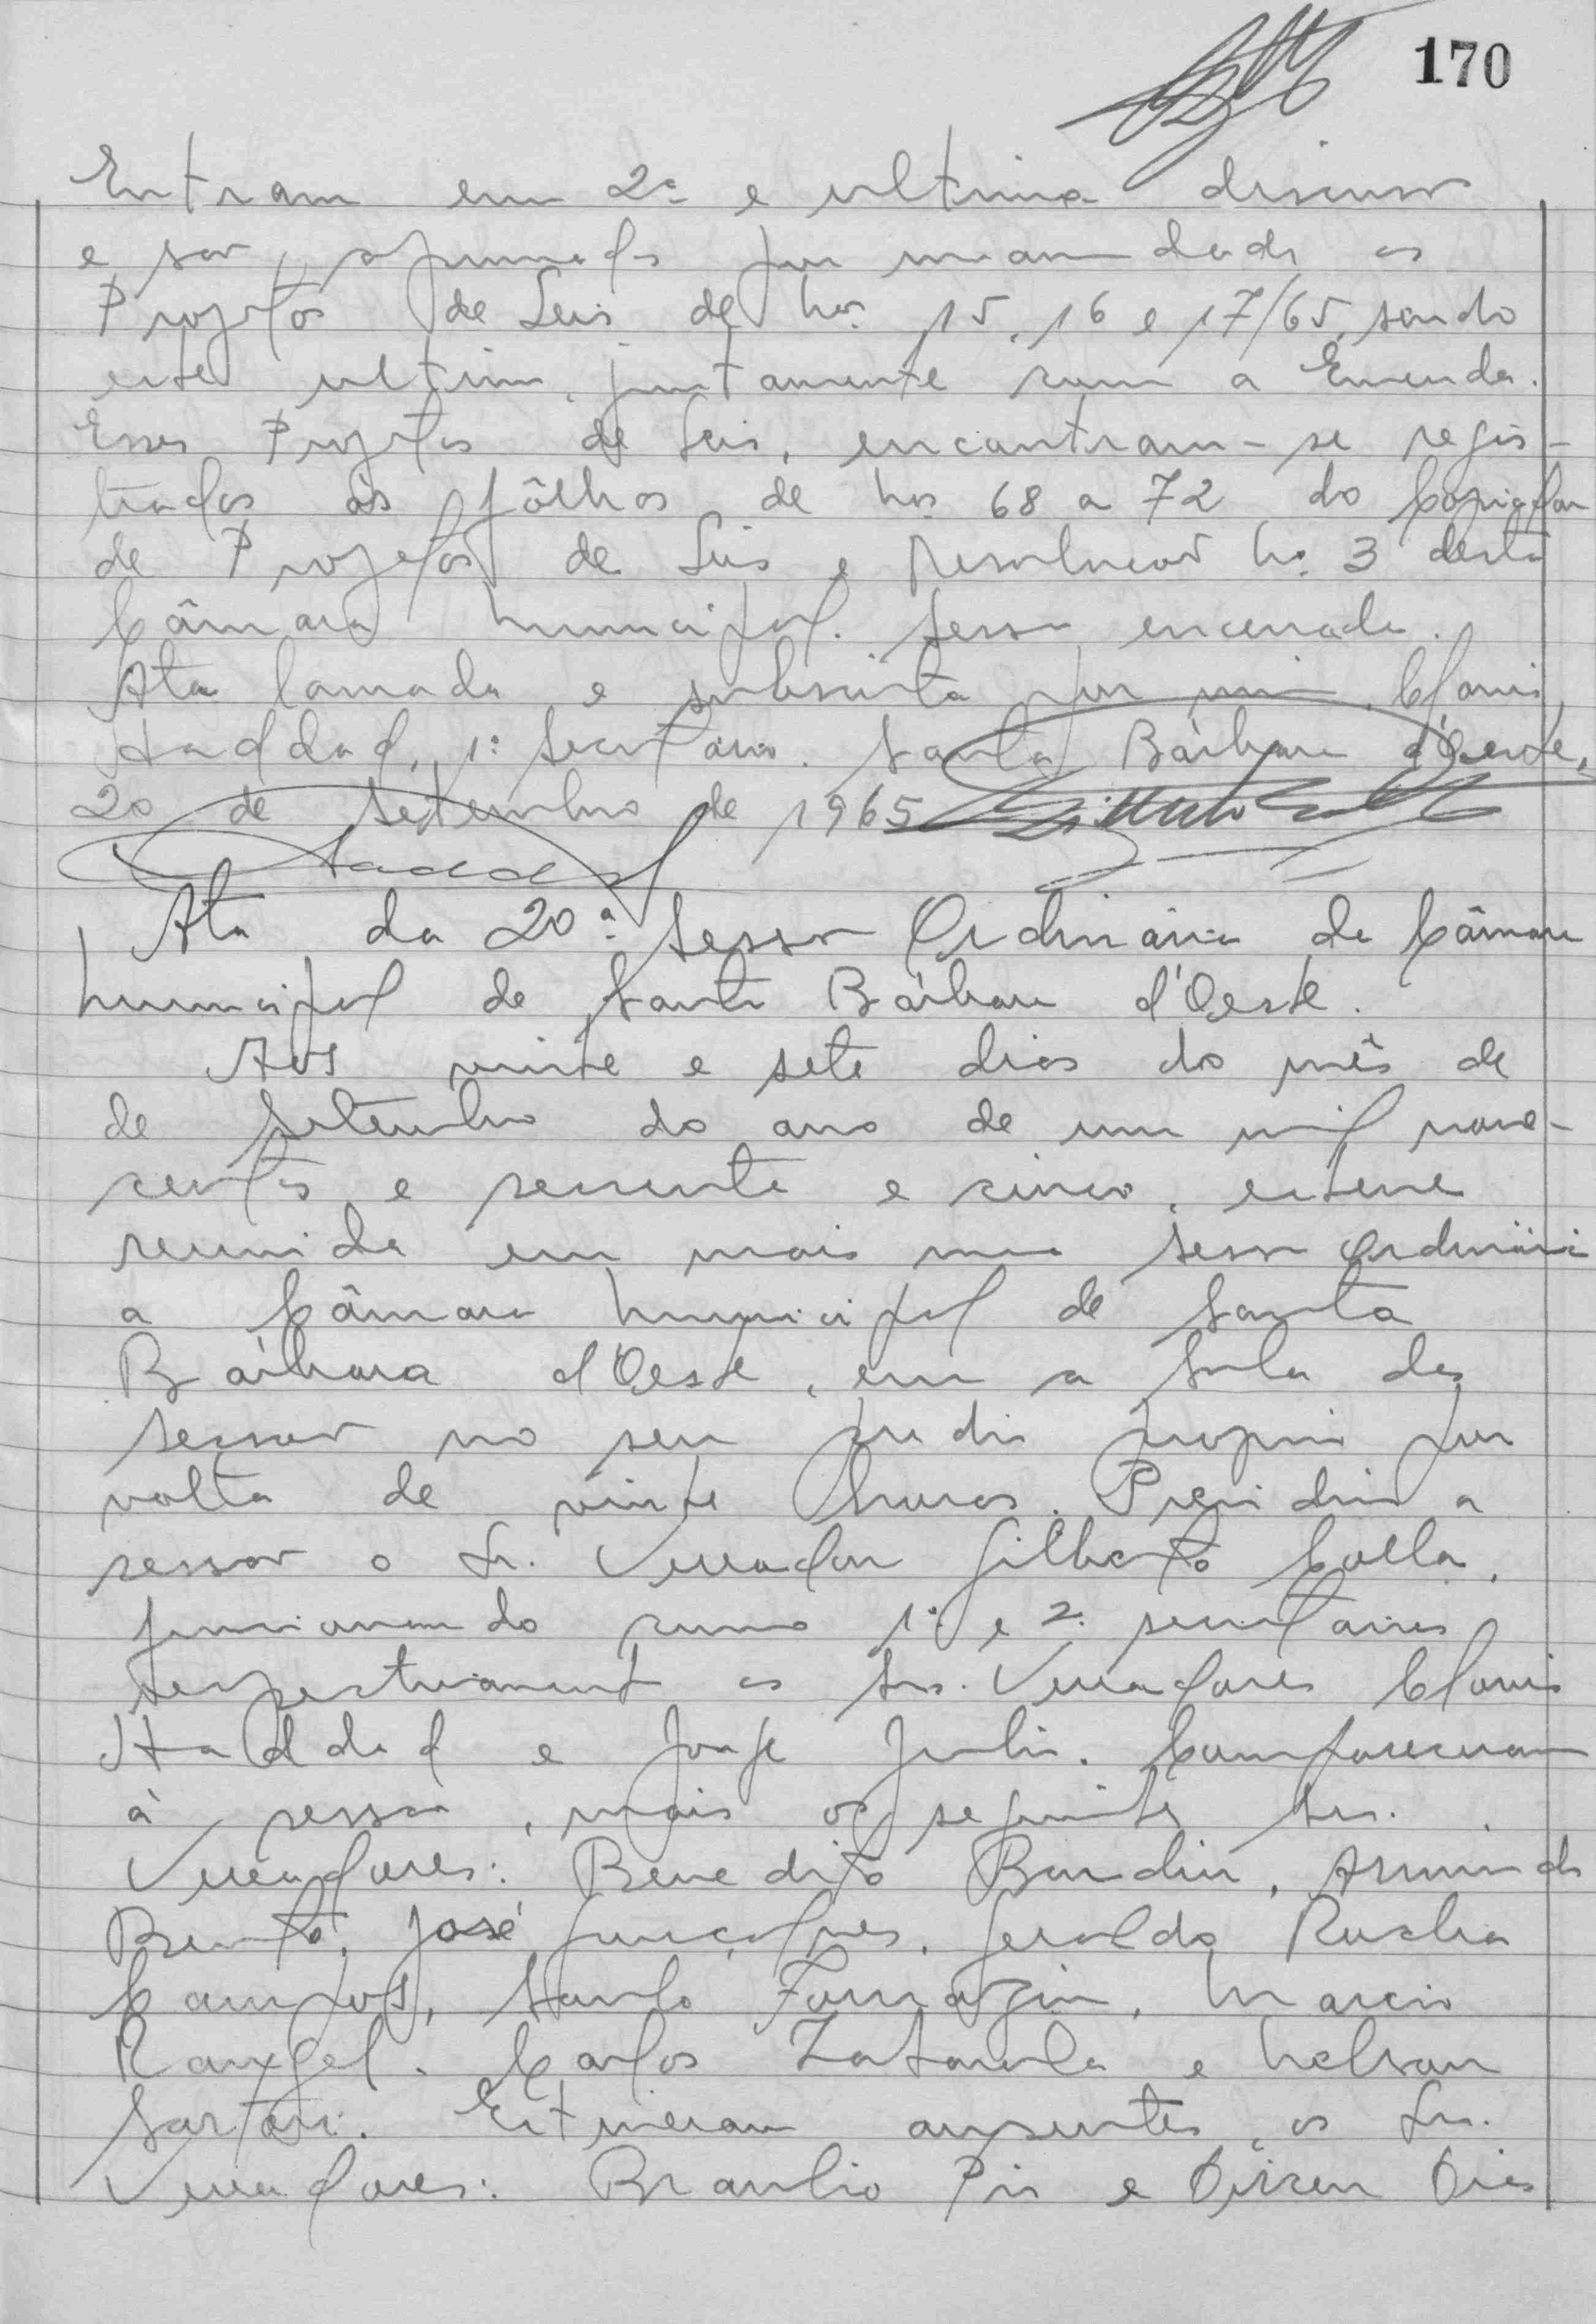 170
Entram em 2ª e ultima discussão
e são aprovados por unanimidade os
Projetos de Leis de nos. 15, 16 e 17/65, sendo
este ultimo, juntamente com a Emenda.
Esses Projetos de Leis, encontram-se regis-
trados às fôlhas de nos. 68 a 72 do Copiador
de Projetos de Leis e Resoluções nº 3 desta
Câmara Municipal. Sessão encerrada.
Ata lavrada e subscrita por mim, Clovis
Haddad, 1º Secretário. Santa Bárbara d'Oeste,
20 de Setembro de 1965
Haddad
Ata da 20ª Sessão Ordinária da Câmara
Municipal de Santa Bárbara d'Oeste.
Aos vinte e sete dias do mês de
de Setembro do ano de um mil nove-
centos e sessenta e cinco, esteve
reunida em mais uma sessão Ordinária
a Câmara Municipal de Santa
Bárbara d'Oeste, em a Sala das
sessões no seu predio proprio por
volta de vinte horas. Presidiu a
sessão o Sr. Vereador Gilberto Colla,
funcionando como 1º e 2º secretários
respectivamente os Srs. Vereadores Clovis
Haddad e Jorge Julio. Compareceram
à sessão, mais os seguintes Srs.
Vereadores: Benedito Bondin, Armindo
Bento, José Gonçalves, Geraldo Rocha
Campos, Santo Fornazin, Marcio
Rangel, Carlos Zatarola e Nelson
Sartori. Estiveram ausentes, os Srs.
Vereadores: Braulio Pio e Dirceu Dias